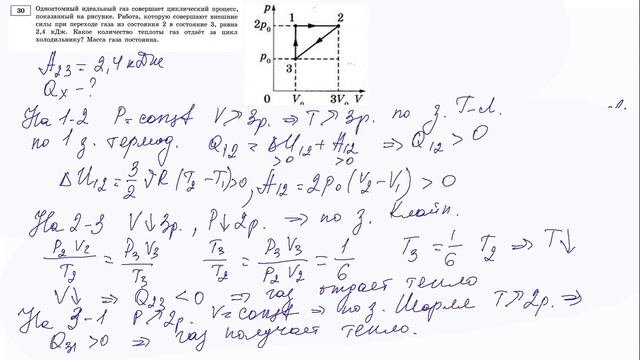 30
Одноатомный идеальный газ совершает циклический процесс,
показанный на рисунке. Работа, которую совершают внешние
силы при переходе газа из состояния 2 в состояние 3, равна
2,4 кДж. Какое количество теплоты газ отдаёт за цикл
холодильнику? Масса газа постоянна.
p
2p₀
1
2
p₀
3
0
V₀
3V₀ V
A₂₃ = 2,4 кДж
Qх - ?
На 1-2 P = const V↗3р. ⇒ T↗3р. по з. Г-Л.
-Л.
по 1 з. термод. Q₁₂ = ΔU₁₂ + A₁₂ ⇒ Q₁₂ > 0
>0 >0
ΔU₁₂ = 3/2 νR (T₂ - T₁) > 0, A₁₂ = 2p₀ (V₂ - V₁) > 0
На 2-3 V↓3р., P↓2р. ⇒ по з. Клайп.
P₂V₂/T₂ = P₃V₃/T₃ T₃/T₂ = P₃V₃/P₂V₂ = 1/6 T₃ = 1/6 T₂ ⇒ T↓
V↓ ⇒ Q₂₃ < 0 ⇒ газ отдает тепло
На 3-1 P↗2р. V = const ⇒ по з. Шарля T↗2р. ⇒
Q₃₁ > 0 ⇒ газ получает тепло.